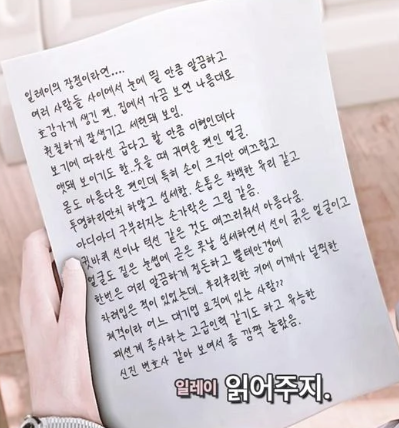 일레이의 장점이라면....
여러 사람들 사이에서 눈에 띌 만큼 말끔하고
호감가게 생긴 편. 집에서 가끔 보면 나름대로
훤칠하게 잘생기고 세련돼 보임.
보기에 따라선 곱다고 할 만큼 미형인데다
앳돼 보이기도 함..웃을 때 귀여운 편인 얼굴.
몸도 아름다운 편인데 특히 손이 크지만 매끄럽고
투명하리만치 하얗고 섬세함. 손톱은 창백한 유리 같고
마디마디 구부러지는 손가락은 그림 같음.
귓바퀴 선이나 턱선 같은 것도 매끄러워서 아름다움.
얼굴도 짙은 눈썹에 곧은 콧날 섬세하면서 선이 굵은 얼굴이고
한번은 머리 말끔하게 정돈하고 뿔테안경에
차려입은 적이 있었는데.. 후리후리한 키에 어깨가 널찍한
체격이라 어느 대기업 요직에 있는 사람??
패션계 종사하는 고급인력 같기도 하고 유능한
신진 변호사 같아 보여서 좀 깜짝 놀랐음.
일레이 읽어주지.